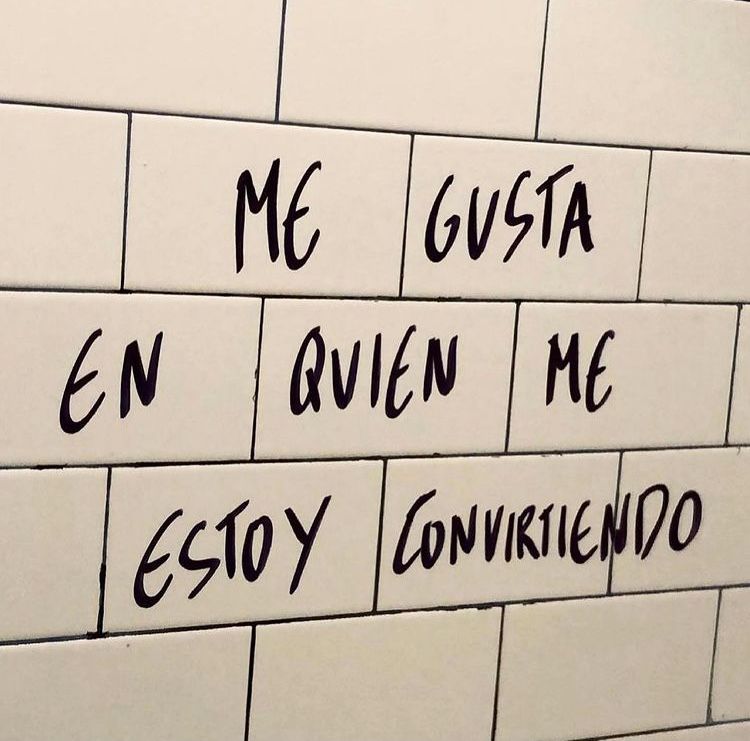 ME GUSTA
EN QUIEN ME
ESTOY CONVIRTIENDO